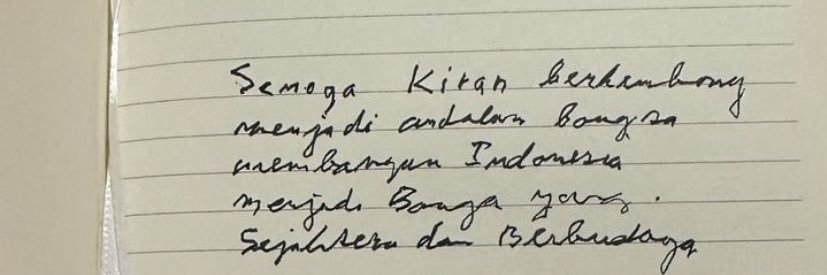 Semoga Kiran berkembang
menjadi andalan bangsa
membangun Indonesia
menjadi Bangsa yang.
Sejahtera dan Berbudaya